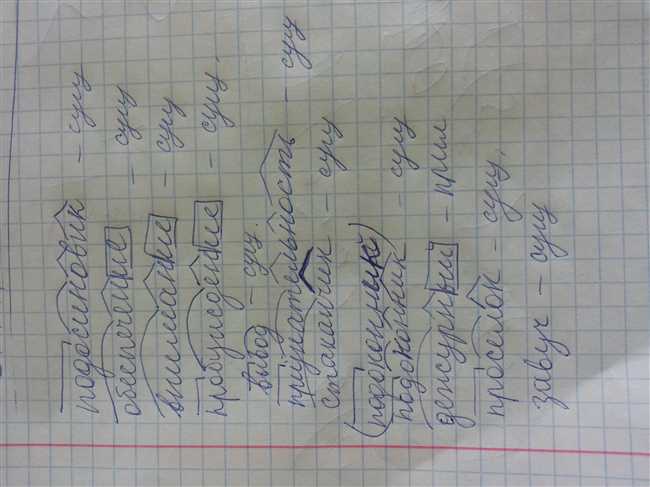 подосиновик - сущ
обеспечение - сущ
внимание - сущ
пробуждение - сущ.
вывод - сущ.
признательность - сущ
стаканчик - сущ
(подоконник)
подоконник - сущ
дежурный - прил
проселок - сущ.
завуч - сущ